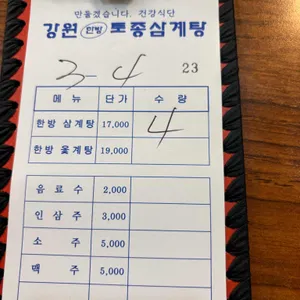 만들겠습니다. 건강식단
강원 한방 토종삼계탕
3-4 23
메뉴 단가 수량
한방 삼계탕 17,000 4
한방 옻계탕 19,000
음료수 2,000
인삼주 3,000
소주 5,000
맥주 5,000